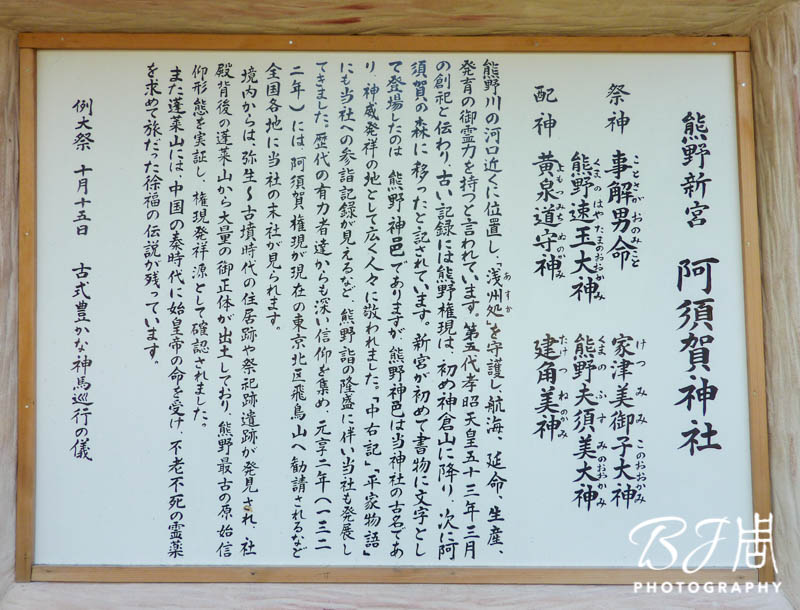 熊野新宮 阿須賀神社
祭神 事解男命 家津美御子大神
ことさかおのみこと けつみみこのおおかみ
熊野速玉大神 熊野夫須美大神
くまのはやたまのおおかみ くまのふすみのおおかみ
配神 黄泉道守神 建角美神
よもつみちもりのかみ たけつねのかみ
熊野川の河口近くに位置し、「浅州処」を守護し、航海、延命、生産、
あすか
発育の御霊力を持つと言われています。第五代孝昭天皇五十三年三月
の創祀と伝わり、古い記録には熊野権現は、初め神倉山に降り、次に阿
須賀の森に移ったと記されています。新宮が初めて書物に文字とし
て登場したのは 熊野神邑でありますが、熊野神邑は当神社の古名であ
り、神威発祥の地として広く人々に敬われました。「中右記」「平家物語」
にも当社への参詣記録が見えるなど、熊野詣の隆盛に伴い当社も発展し
てきました。歴代の有力者達からも深い信仰を集め、元享二年(一三二
二年)には、阿須賀権現が現在の東京北区飛鳥山へ勧請されるなど
全国各地に当社の末社が見られます。
境内からは、弥生〜古墳時代の住居跡や祭祀跡遺跡が発見され、社
殿背後の蓬莱山から大量の御正体が出土しており、熊野最古の原始信
仰形態を実証し、権現発祥源として確認されました。
また蓬莱山には、中国の秦時代に始皇帝の命を受け、不老不死の霊薬
を求めて旅だった徐福の伝説が残っています。
例大祭 十月十五日 古式豊かな神馬巡行の儀
BJ周
PHOTOGRAPHY